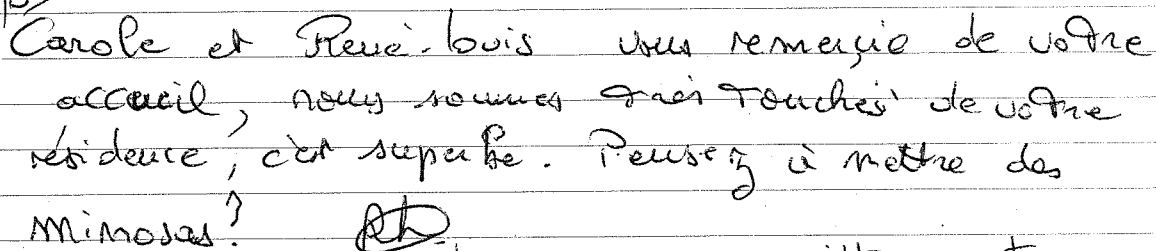 Carole et René-Louis vous remerçie de votre
accueil, nous sommes très touchés de votre
résidence, c'est superbe. Pensez à mettre des
mimosas?